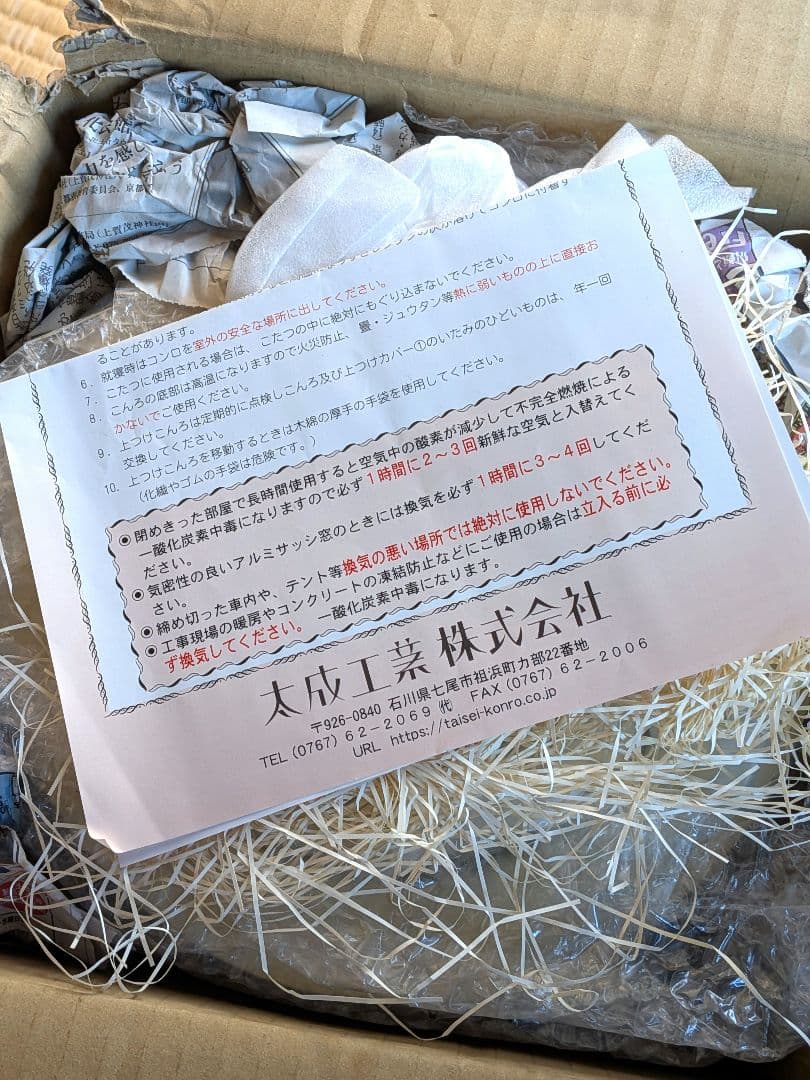 ることがあります。
6. 就寝時はコンロを室外の安全な場所に出してください。
7. こたつに使用される場合は、こたつの中に絶対にもぐり込まないでください。
8. こんろの底部は高温になりますので火災防止、畳・ジュウタン等熱に弱いものの上に直接お
かないでご使用ください。
9. 上つけこんろは定期的に点検しこんろ及び上つけカバー①のいたみのひどいものは、年一回
交換してください。
10. 上つけこんろを移動するときは木綿の厚手の手袋を使用してください。
(化繊やゴムの手袋は危険です。)
◉閉めきった部屋で長時間使用すると空気中の酸素が減少して不完全燃焼による
一酸化炭素中毒になりますので必ず1時間に2〜3回新鮮な空気と入替えてく
ださい。
◉気密性の良いアルミサッシ窓のときには換気を必ず1時間に3〜4回してくだ
さい。
◉締め切った車内や、テント等換気の悪い場所では絶対に使用しないでください。
◉工事現場の暖房やコンクリートの凍結防止などにご使用の場合は立入る前に必
ず換気してください。 一酸化炭素中毒になります。
太成工業株式会社
〒926-0840 石川県七尾市祖浜町カ部22番地
TEL(0767)62-2069㈹ FAX(0767)62-2006
URL https://taisei-konro.co.jp